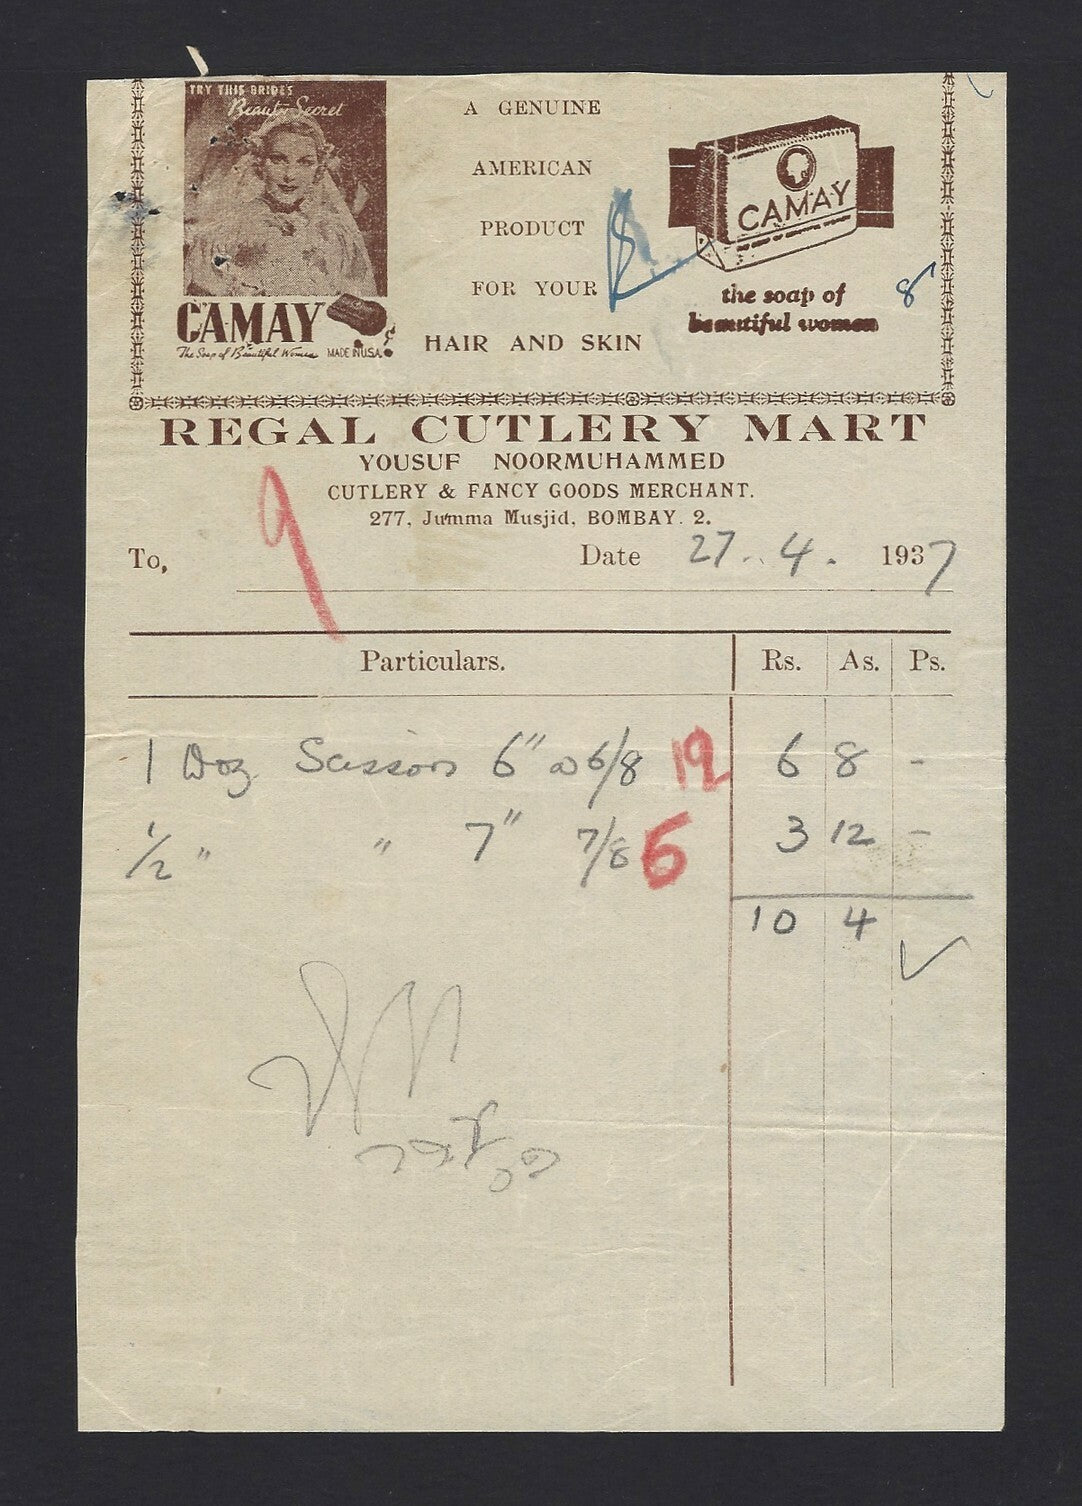 TRY THIS BRIDE'S
Beauty Secret
CAMAY
The Soap of Beautiful Women
MADE IN U.S.A.
A GENUINE
AMERICAN
PRODUCT
FOR YOUR
HAIR AND SKIN
CAMAY
the soap of
beautiful women
8
REGAL CUTLERY MART
YOUSUF NOORMUHAMMED
CUTLERY & FANCY GOODS MERCHANT.
277, Jumma Musjid, BOMBAY. 2.
9
To, Date 27. 4. 1937
Particulars. Rs. As. Ps.
1 Doz Scissors 6" @ 6/8 12 6 8 -
1/2 " " 7" 7/8 6 3 12 -
10 4